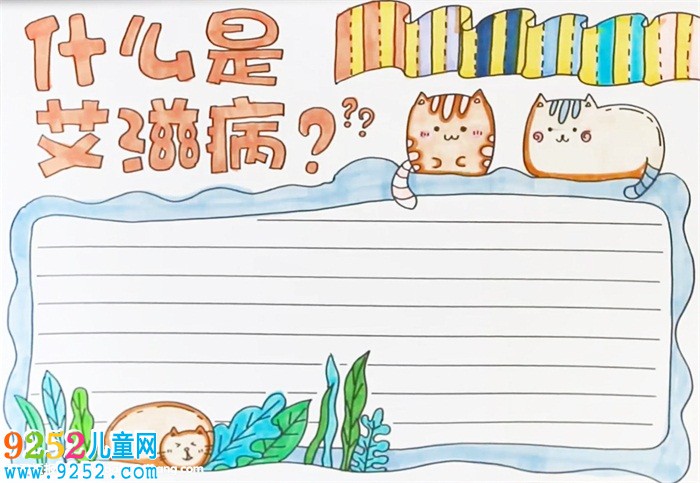 什么是
艾滋病???
9252儿童网
www.9252.com